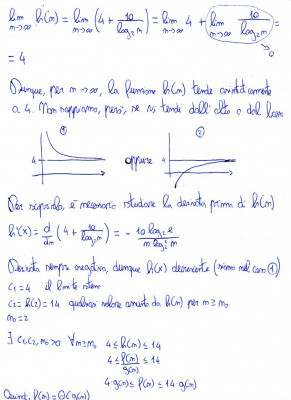 lim h(n) = lim (4 + 10/log₂n) = lim 4 + lim 10/log₂n =
n→∞ n→∞ n→∞ n→∞ → 0
= 4
Dunque, per n→∞, la funzione h(n) tende asintoticamente
a 4. Non sappiamo, però, se vi tende dall'alto o dal basso
① ②
4 oppure 4
Per saperlo, è necessario studiare la derivata prima di h(n)
h'(x) = d/dn (4 + 10/log₂n) = - 10 log₂e / n log₂²n
Derivata sempre negativa, dunque h(x) decrescente (siamo nel caso ①)
c₁ = 4 il limite
c₂ = h(2) = 14 qualsiasi valore assunto da h(n) per n ≥ n₀
n₀ = 2
∃ c₁, c₂, n₀ > 0 ∀n ≥ n₀ 4 ≤ h(n) ≤ 14
4 ≤ f(n)/g(n) ≤ 14
4·g(n) ≤ f(n) ≤ 14·g(n)
Quindi, f(n) = Θ(g(n))